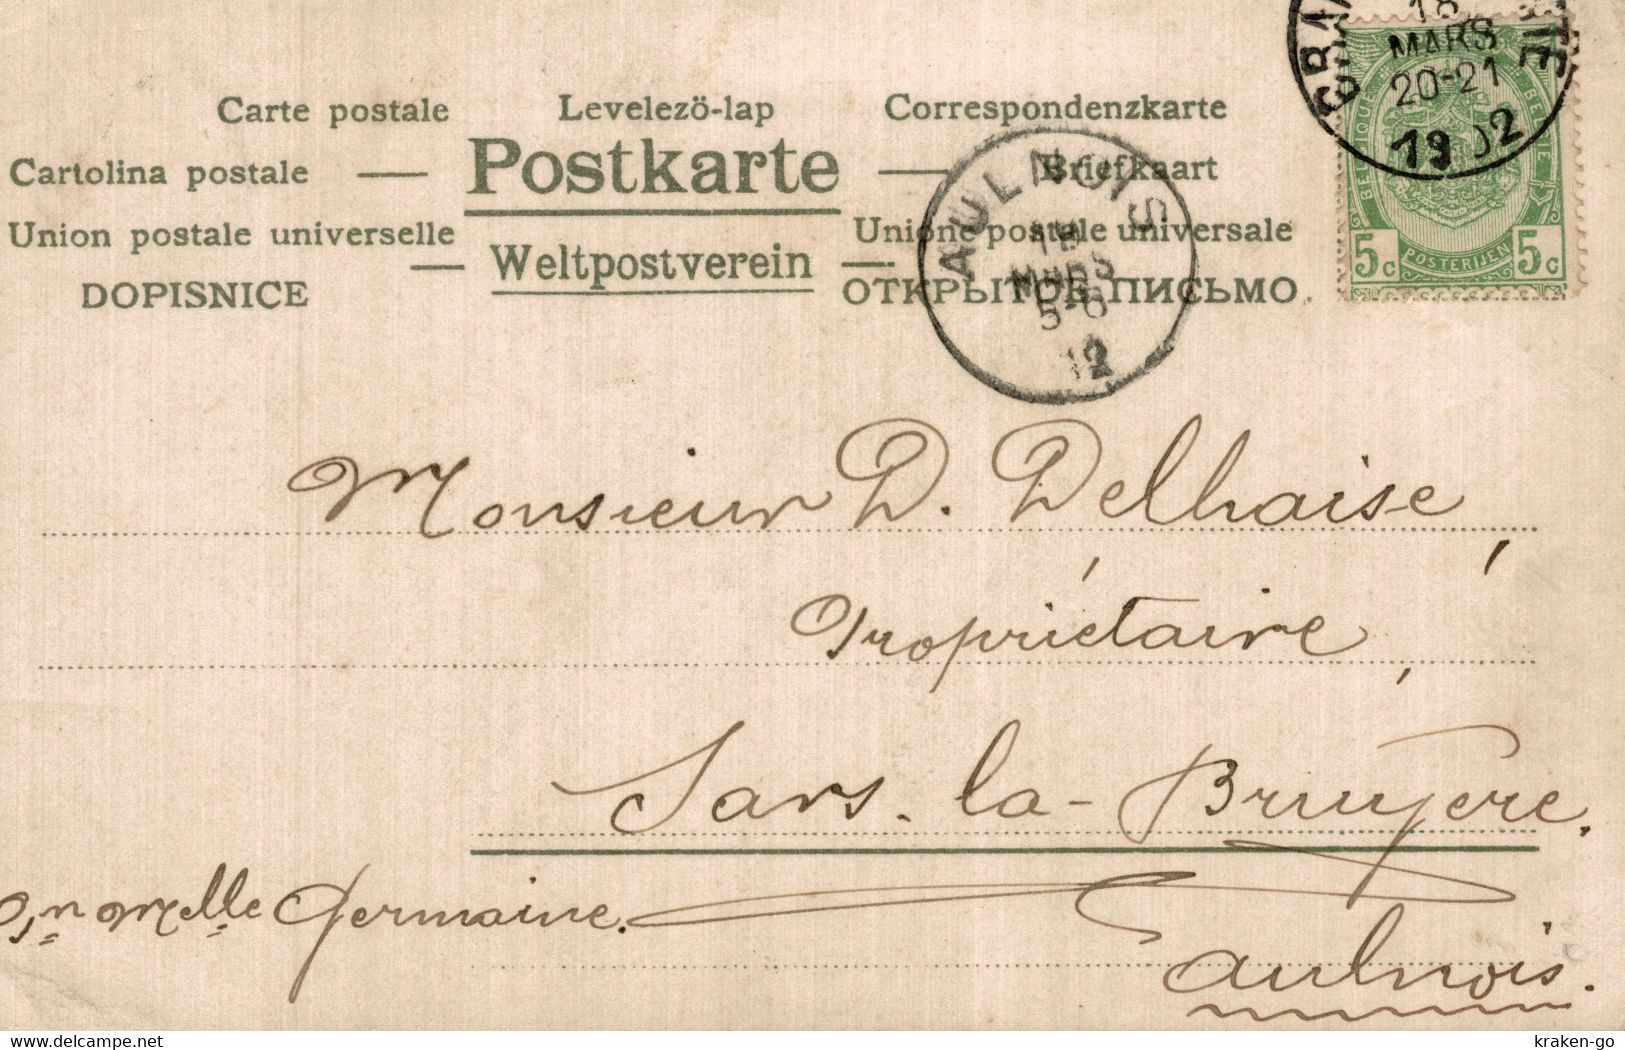 18
MARS
20-21
1902
Carte postale
Levelezö-lap
Correspondenzkarte
Cartolina postale
Postkarte
Briefkaart
Union postale universelle
Weltpostverein
Unione postale universale
DOPISNICE
ОТКРЫТОЕ ПИСЬМО.
AULNOIS
MARS
5-6
5c
POSTERIJEN
5c
Monsieur D. Delhaise,
Propriétaire,
Sars-la-Bruyère.
Melle Germaine.
Aulnois.
www.delcampe.net
kraken-go